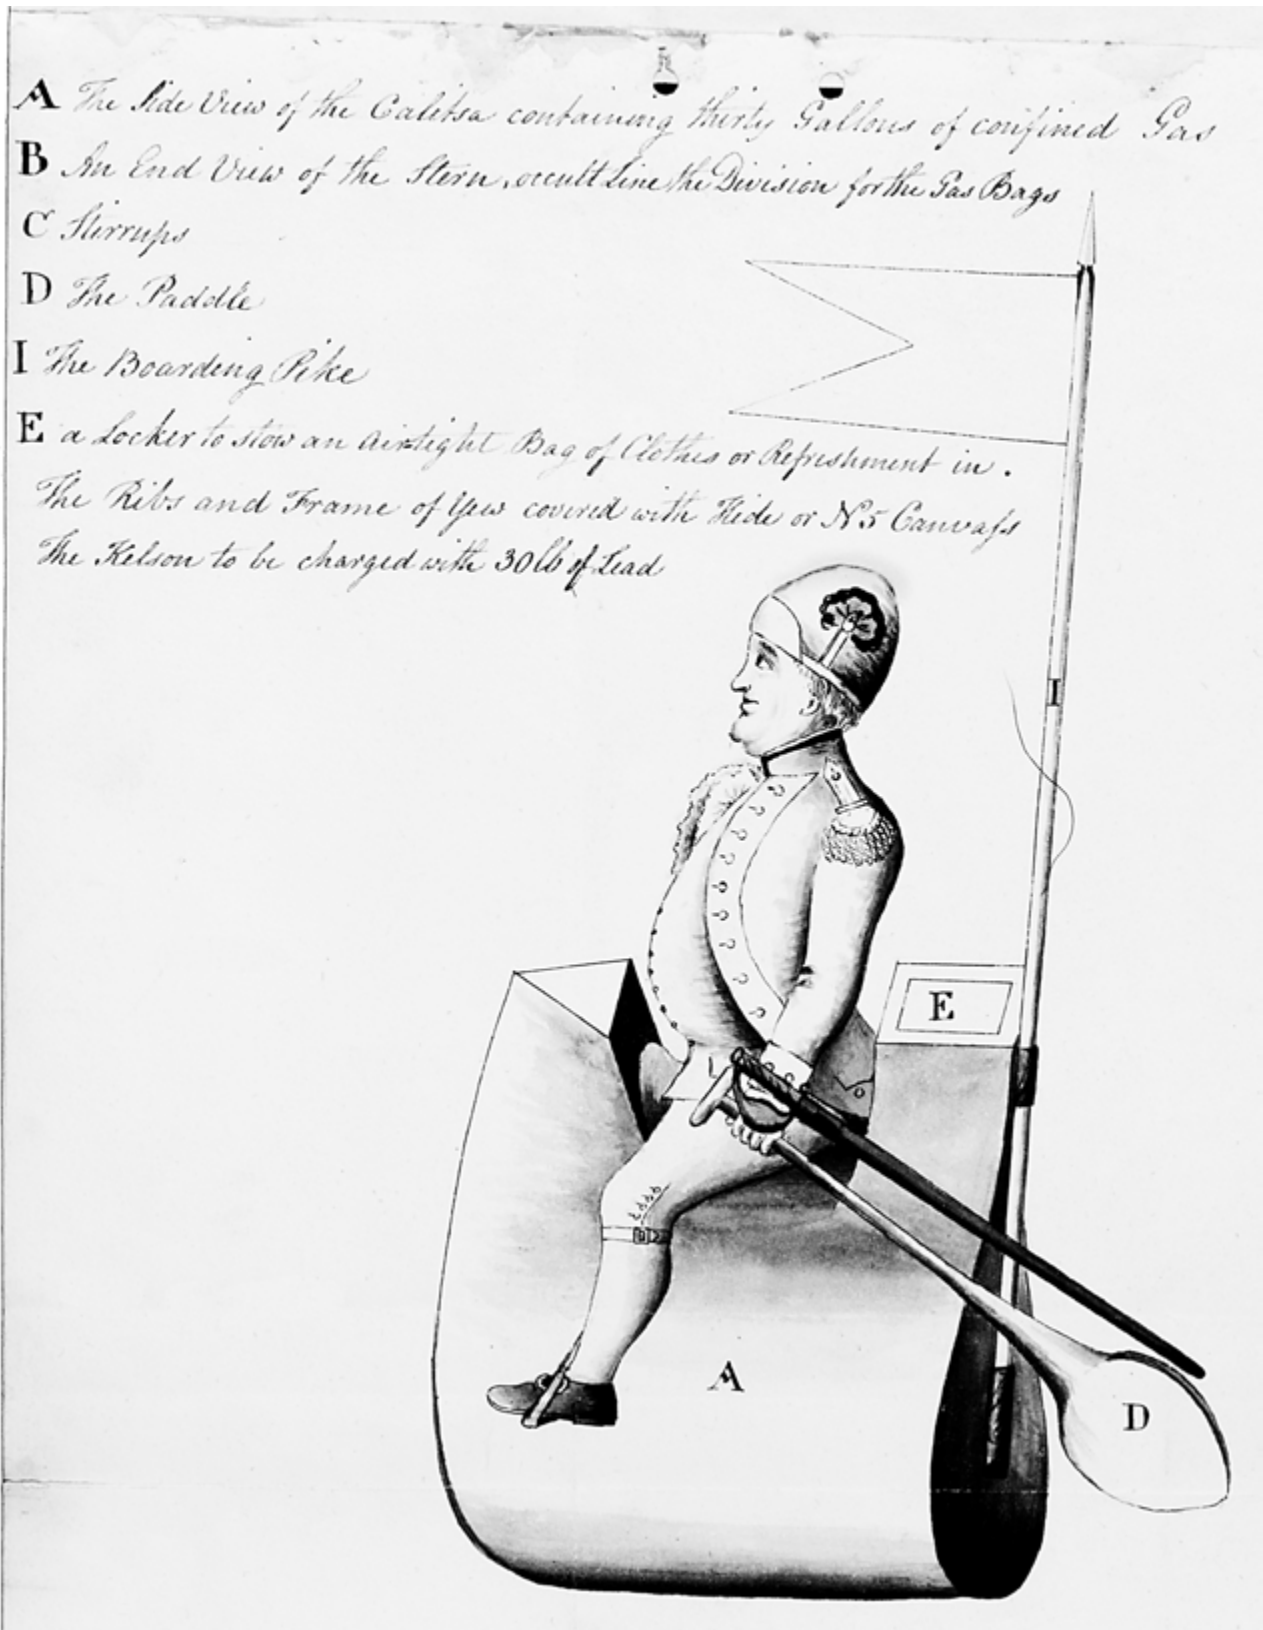 A The Side View of the Calitsa containing thirty Gallons of confined Gas
B An End View of the Stern, occult Line the Division for the Gas Bags
C Stirrups
D The Paddle
I The Boarding Pike
E a Locker to stow an airtight Bag of Clothes or Refreshment in.
The Ribs and Frame of Yew covered with Hide or N5 Canvass
The Kelson to be charged with 30 lb of Lead
I
E
A
D